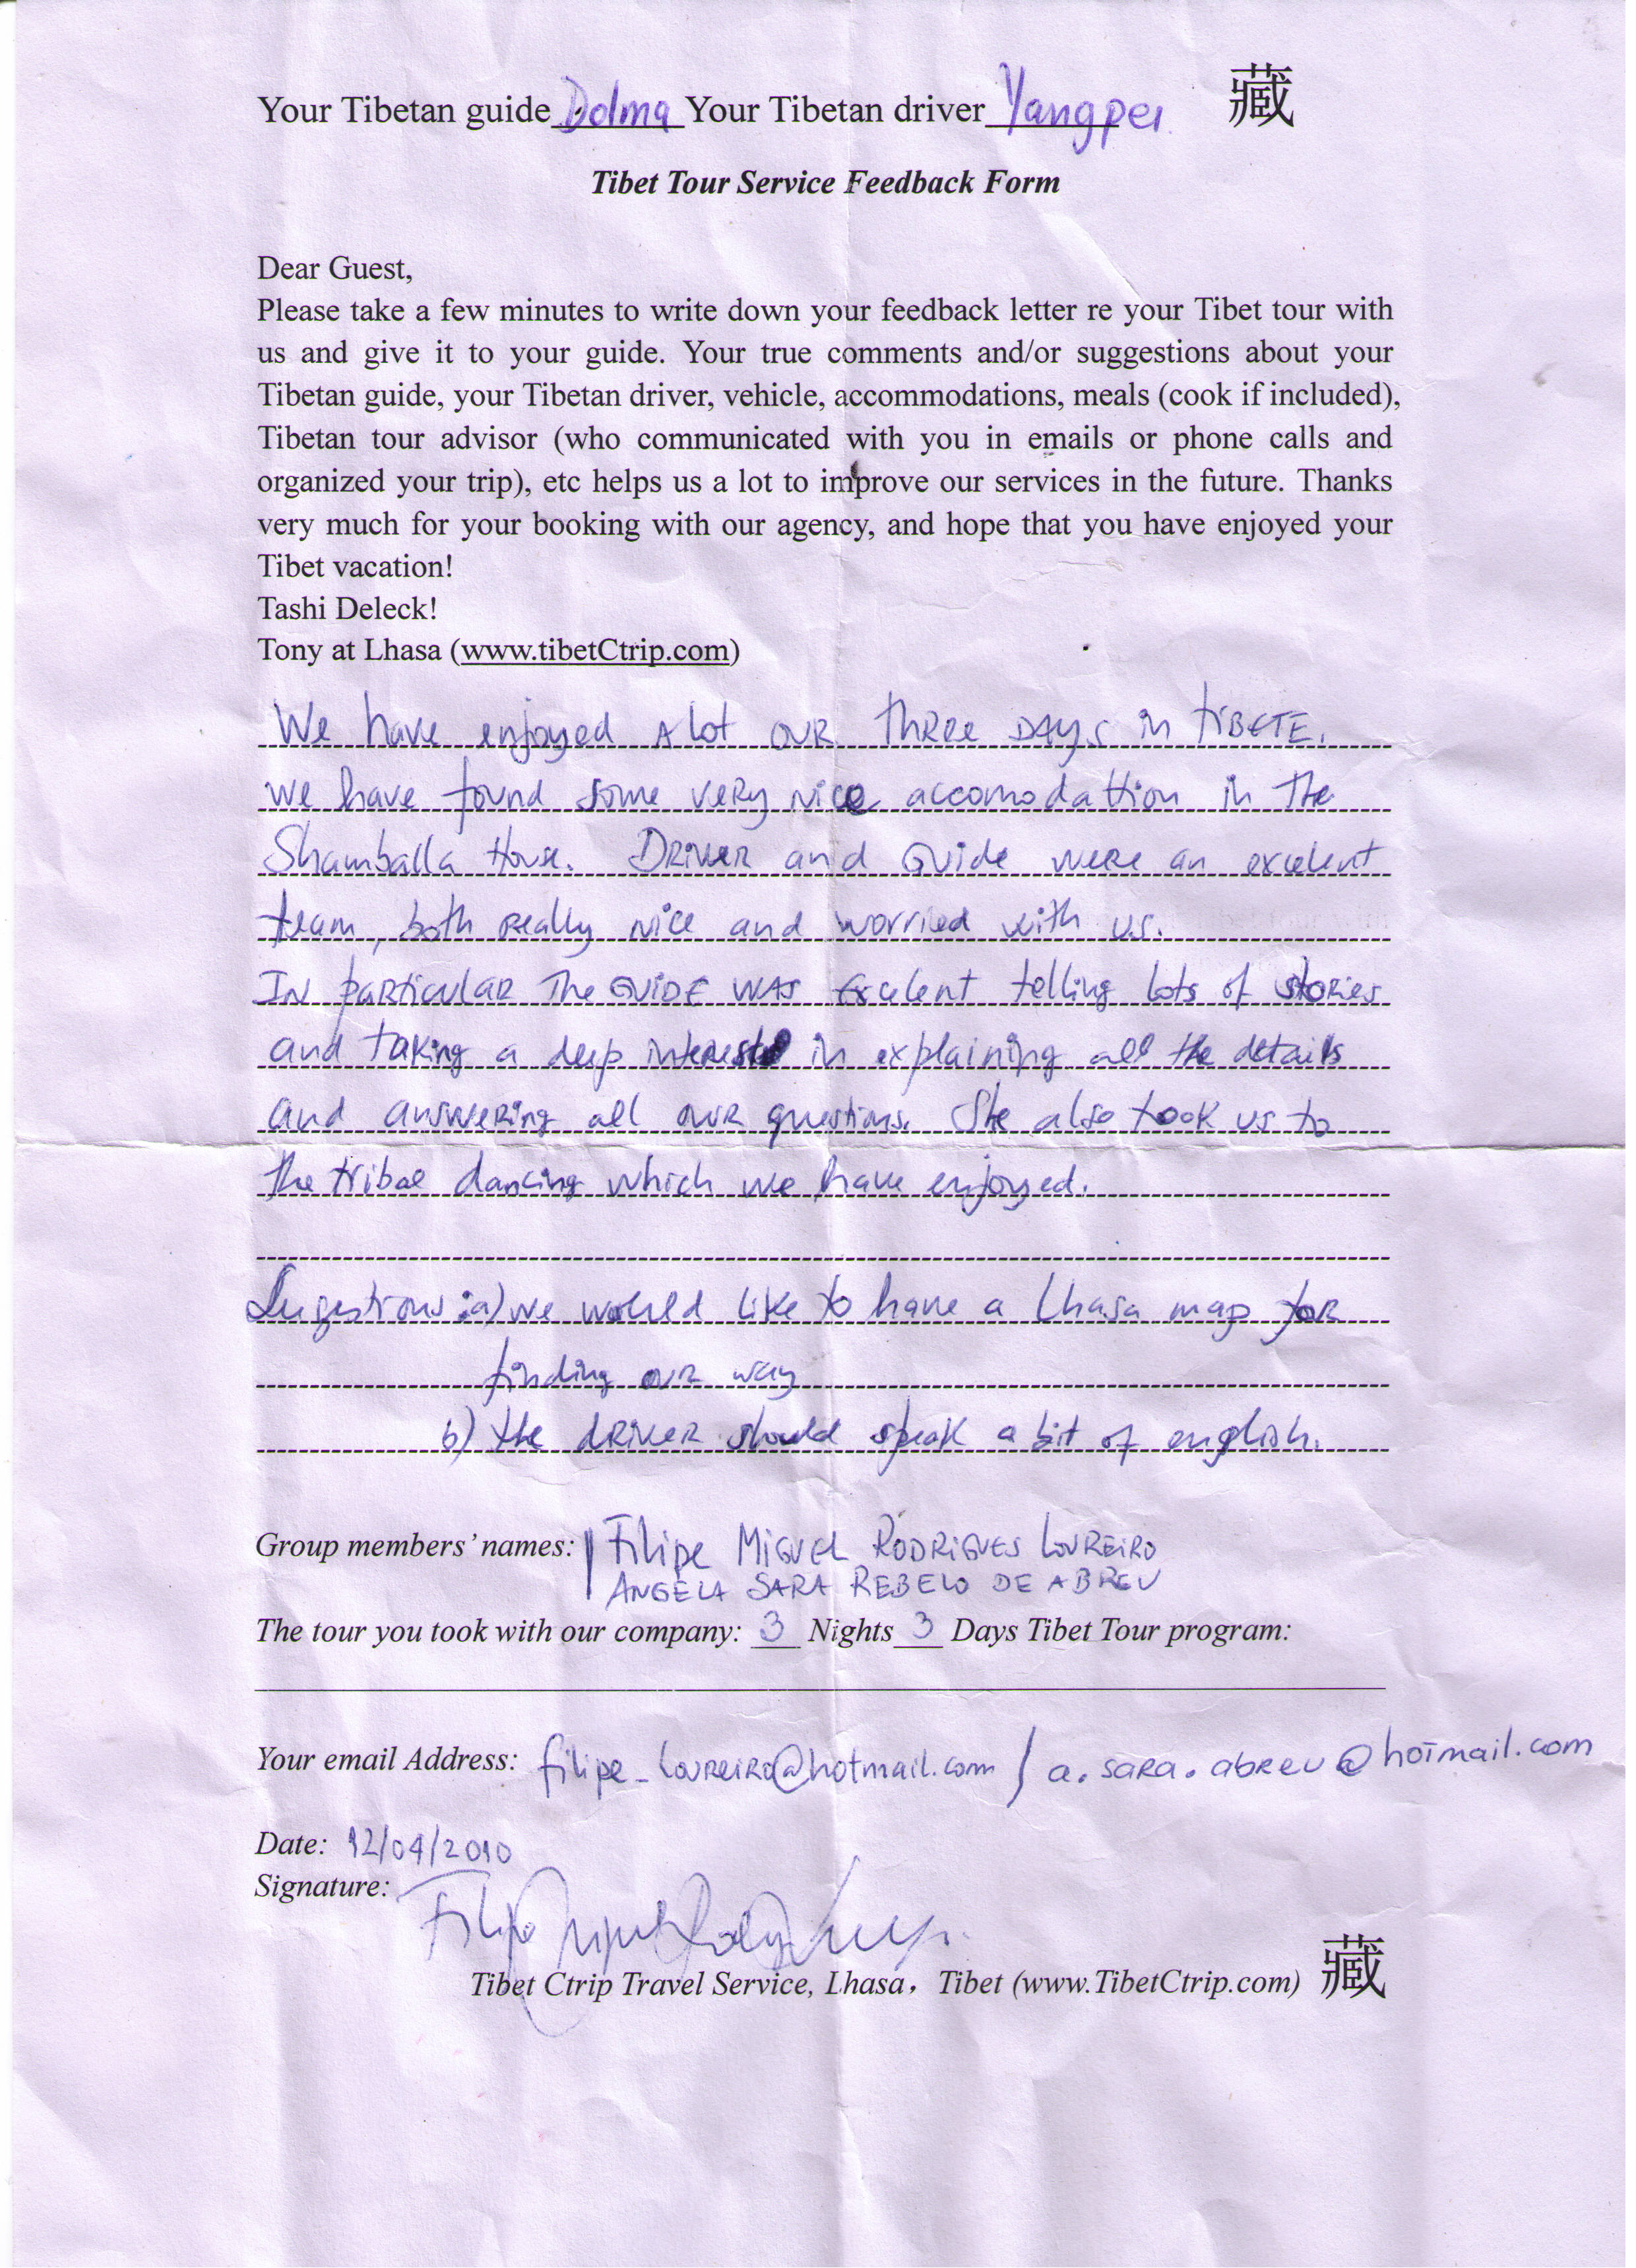 Your Tibetan guide Dolma Your Tibetan driver Yangpei 藏
Tibet Tour Service Feedback Form
Dear Guest,
Please take a few minutes to write down your feedback letter re your Tibet tour with
us and give it to your guide. Your true comments and/or suggestions about your
Tibetan guide, your Tibetan driver, vehicle, accommodations, meals (cook if included),
Tibetan tour advisor (who communicated with you in emails or phone calls and
organized your trip), etc helps us a lot to improve our services in the future. Thanks
very much for your booking with our agency, and hope that you have enjoyed your
Tibet vacation!
Tashi Deleck!
Tony at Lhasa (www.tibetCtrip.com)
We have enjoyed A lot OUR three DAYS in TIBETE.
we have found some very nice accomodattion in the
Shamballa House. DRIVER and GUide were an excelent
team, both really nice and worried with us.
IN particular The GUIDE WAS Excelent telling lots of stories
and taking a deep interest in explaining all the details
and answering all our questions. She also took us to
the tribal dancing which we have enjoyed.
Sugestions: a) we would like to have a Lhasa map for
finding our way
b) the driver should speak a bit of english.
Group members’ names: Filipe MIGUEL RODRIGUES LOUREIRO
ANGELA SARA REBELO DE ABREU
The tour you took with our company: 3 Nights 3 Days Tibet Tour program:
Your email Address: filipe_loureiro@hotmail.com / a.sara.abreu@hotmail.com
Date: 12/04/2010
Signature: Filipe
Tibet Ctrip Travel Service, Lhasa，Tibet (www.TibetCtrip.com) 藏